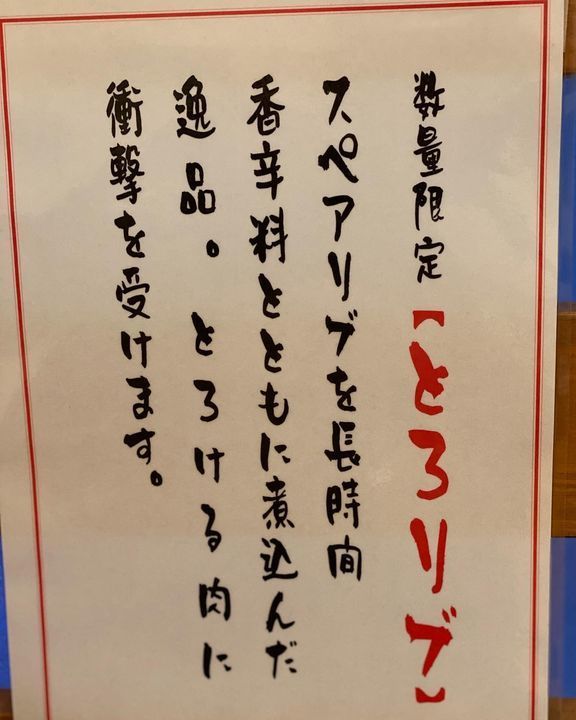 数量限定【とろリブ】
スペアリブを長時間
香辛料とともに煮込んだ
逸品。とろける肉に
衝撃を受けます。